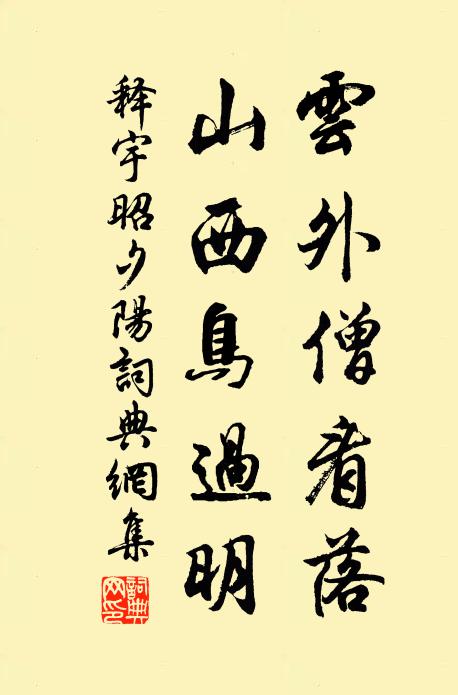 雲外僧看落
山西鳥過明
释宇昭夕陽詞典網集
詞典